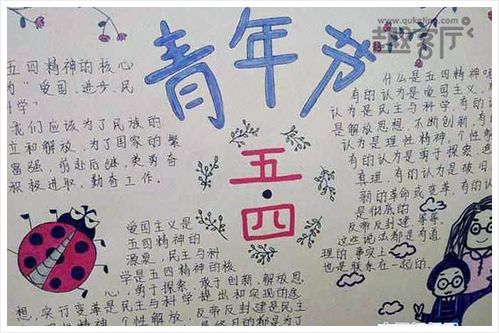 www.quketing.com
趣客厅
青年节
五·四
五四精神的核心
为“爱国、进步、民
科学”
我们应该为了民族的
立和解放、为了国家的繁
富强，前赴后继、英勇奋
积极进取，勤奋工作。
爱国主义是
五四精神的
源泉，民主与科
学是五四精神的核
勇于探索、敢于创新、解放思
想、实行变革是民主与科学提出和实现的途
精神 个性解放、反帝封建是民主
什么是五四精神呢
有的认为是爱国主义，有
认为是民主与科学，有的
是解放思想、不断创新，有
认为是理性精神，个性解
有的认为是勇于探索、追
真理，有的认为是破旧
新的革命或变革，有的认
是彻底的
反帝反封建 等等。
这些说法都是有道
理的 事实上
也是联系在一起的。